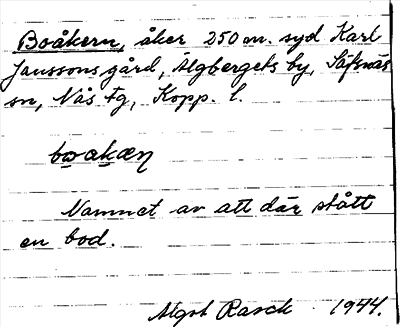 Boåkern, åker 250 m. syd Karl
Janssons gård, Älgbergets by, Säfsnäs
sn, Nås fg, Kopp. l.
Namnet av att där stått
en bod.
Algot Rasck 1944.